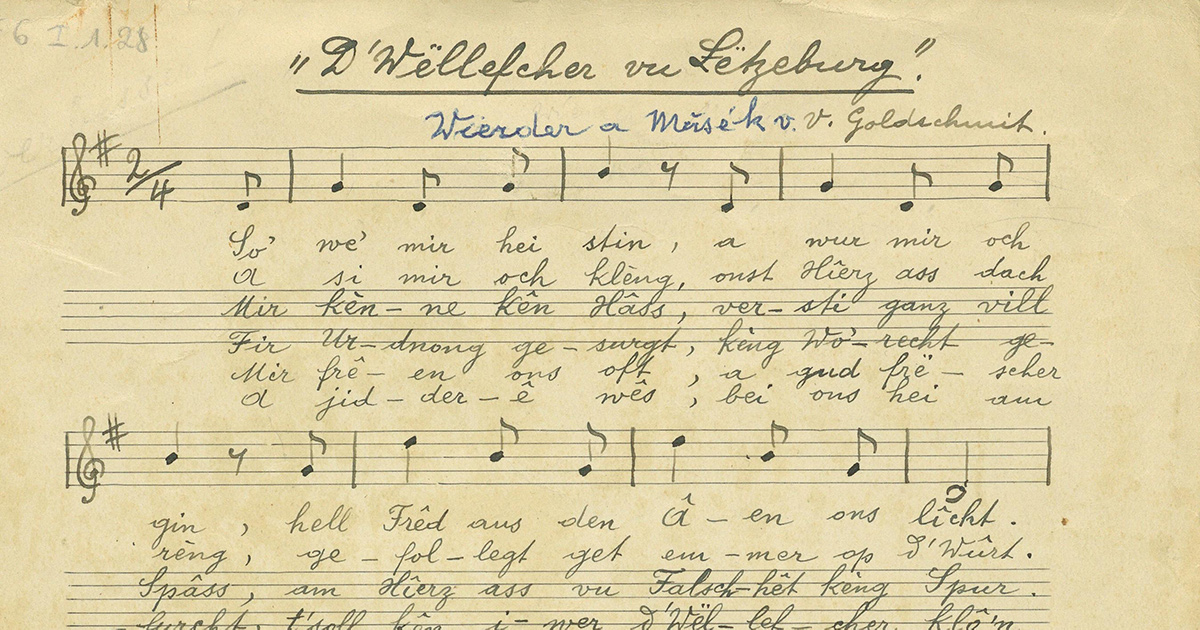 6 I.1.28
"D'Wëllefcher vu Lëtzeburg".
Wierder a Musék v. V. Goldschmit.
2/4
So' we' mir hei stin, a wur mir och
A si mir och klèng, onst Hîerz ass dach
Mir kèn-ne kên Hâss, ver-sti ganz vill
Fir Ur-dnong ge-surgt, kèng Wo'-recht ge-
Mir frê-en ons oft, a gud frë-scher
A jid-der-ê wês, bei ons hei am
gin, hell Frêd aus den Â-en ons lîcht.
rèng, ge-fol-legt get em-mer op d'Wûrt.
Spâss, am Hîerz ass vu Falsch-hêt kèng Spur.
furcht, t'soll kên i-wer d'Wël-lef-cher klô'n